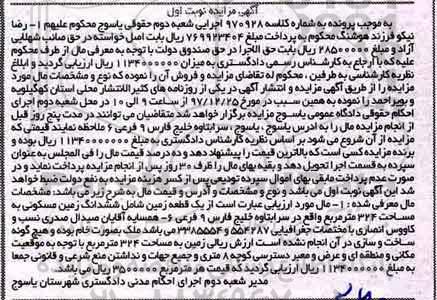 آگهی مزایده نوبت اول
به موجب پرونده به شماره کلاسه ۹۷۰۹۲۸ اجرایی شعبه دوم حقوقی یاسوج محکوم علیهم ۱- رضا
نیکو فرزند هوشنگ محکوم به پرداخت مبلغ ۷۶۹۹۲۳۴۰۴ ریال بابت اصل خواسته در حق صاتب شهلایی
آزاد و مبلغ ۲۸۵۰۰۰۰۰ ریال بابت حق الاجرا در حق صندوق دولت با توجه به معرفی مال از طرف محکوم
علیه که با ارجاع به کارشناس رسمی دادگستری به میزان ۱۱۳۴۰۰۰۰۰۰ ریال ارزیابی گردید و ابلاغ
نظریه کارشناسی به طرفین ، محکوم له تقاضای مزایده و فروش آن را نموده که نوع و مشخصات مال مورد
مزایده را از طریق آگهی مزایده و انتشار آگهی در یکی از روزنامه های کثیر الانتشار محلی استان کهگیلویه
و بویراحمد را نموده به همین سبب در مورخ ۹۷/۱۲/۲۵ از ساعت ۹ الی ۱۰ در محل شعبه دوم اجرای
احکام حقوقی دادگاه عمومی یاسوج مزایده برگزار خواهد شد متقاضیان می توانند در مدت پنج روز قبل
از انجام مزایده مال را به ادرس یاسوج ، یاسوج ، سرابتاوه خلیج فارس ۹ فرعی ۶ ملاحظه نمایند قیمتی که
مزایده از آن شروع می شود بر اساس نظریه کارشناس دادگستری به مبلغ ۱۱۳۴۰۰۰۰۰۰ ریال بوده و
برنده مزایده کسی است که بالاترین قیمت را پیشنهاد دهد و ده درصد قیمت مال را فی المجلس به عنوان
سپرده به قسمت اجرا تحویل دهد و بقیه بهای مال را ظرف ۳۰ روز پس از انجام مزایده پرداخت نماید و در
صورت عدم پرداخت مابقی بهای اموال سپرده تودیعی پس از کسر هزینه مزایده به نفع دولت ضبط خواهد
شد این آگهی نوبت اول می باشد و نوع و مشخصات و آدرس و قیمت مال به شرح زیر می باشد: مشخصات
مال معرفی شده :۱- مال مورد ارزیابی عبارت است از یک قطعه زمین شامل ششدانگ زمین مسکونی به
مساحت ۳۲۴ مترمربع واقع در سرابتاوه خلیج فارس ۹ فرعی ۶- همسایه آقایان صیدال صدری نسب و
کاووس انصاری با مختصات جغرافیایی ۵۵۴۲۸۷ و ۳۳۸۵۵۵۴ می باشد ملک بصورت خام بوده و هیچ گونه
ساخت و سازی در آن انجام نشده است ارزش ریالی زمین به مساحت ۳۲۴ مترمربع با توجه به موقعیت
مکانی و منطقه ای و عرض و معبر دسترسی کوچه ۸ متری و جمیع جهات و نداشتن منع شرعی و قانونی جمعا
به مبلغ ۱۱۳۴۰۰۰۰۰۰ ریال ارزیابی گردید که قیمت هر مترمربع ۳۵۰۰۰۰۰ ریال می باشد.
مدیر شعبه دوم اجرای احکام مدنی دادگستری شهرستان یاسوج